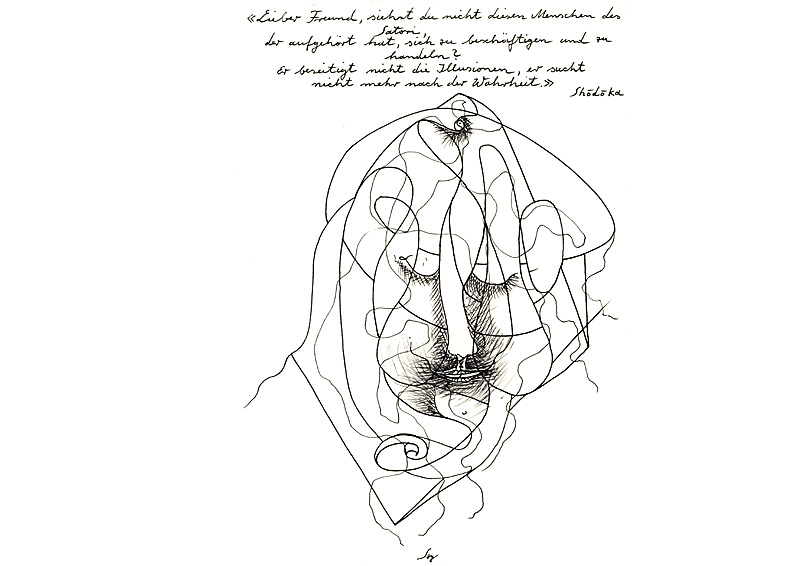 «Lieber Freund, siehst du nicht diesen Menschen des
Satori,
der aufgehört hat, sich zu beschäftigen und zu
handeln?
Er beseitigt nicht die Illusionen, er sucht
nicht mehr nach der Wahrheit.»
Shōdōka